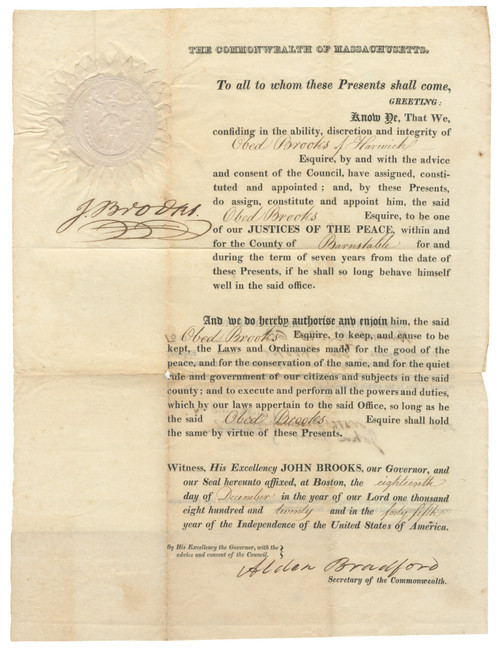 THE COMMONWEALTH OF MASSACHUSETTS.
To all to whom these Presents shall come,
GREETING:
Know Ye, That We,
confiding in the ability, discretion and integrity of
Obed Brooks of Harwich
Esquire, by and with the advice
and consent of the Council, have assigned, consti-
tuted and appointed; and, by these Presents,
do assign, constitute and appoint him, the said
Obed Brooks Esquire, to be one
of our JUSTICES OF THE PEACE, within and
for the County of Barnstable for and
during the term of seven years from the date of
these Presents, if he shall so long behave himself
well in the said office.
J. Brooks.
And we do hereby authorise any enjoin him, the said
Obed Brooks Esquire, to keep, and cause to be
kept, the Laws and Ordinances made for the good of the
peace, and for the conservation of the same, and for the quiet
rule and government of our citizens and subjects in the said
county; and to execute and perform all the powers and duties,
which by our laws appertain to the said Office, so long as he
the said Obed Brooks Esquire shall hold
the same by virtue of these Presents.
Witness, His Excellency JOHN BROOKS, our Governor, and
our Seal hereunto affixed, at Boston, the eighteenth
day of December in the year of our Lord one thousand
eight hundred and twenty and in the forty fifth
year of the Independence of the United States of America.
By His Excellency the Governor, with the
advice and consent of the Council.
Alden Bradford
Secretary of the Commonwealth.